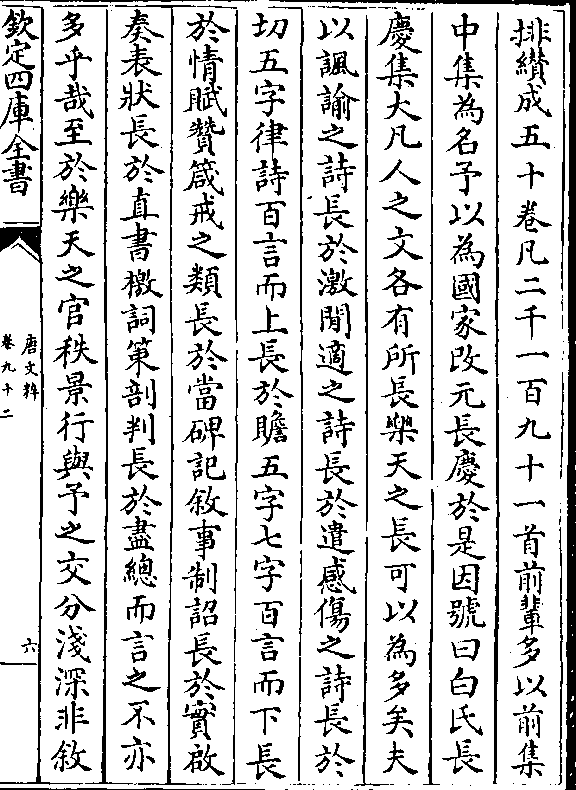 排纉成五十卷凡二千一百九十一首前輩多以前集
中集為名予以為國家改元長慶於是因號曰白氏長
慶集大凡人之文各有所長樂天之長可以為多矣夫
以諷諭之詩長於激閒適之詩長於遣感傷之詩長於
切五字律詩百言而上長於贍五字七字百言而下長
於情賦贊箴戒之類長於當碑記敘事制詔長於實啟
奏表狀長於直書檄詞策剖判長於盡總而言之不亦
多乎哉至於樂天之官秩景行與予之交分淺深非敘
欽定四庫全書
唐文粹
卷九十二
六